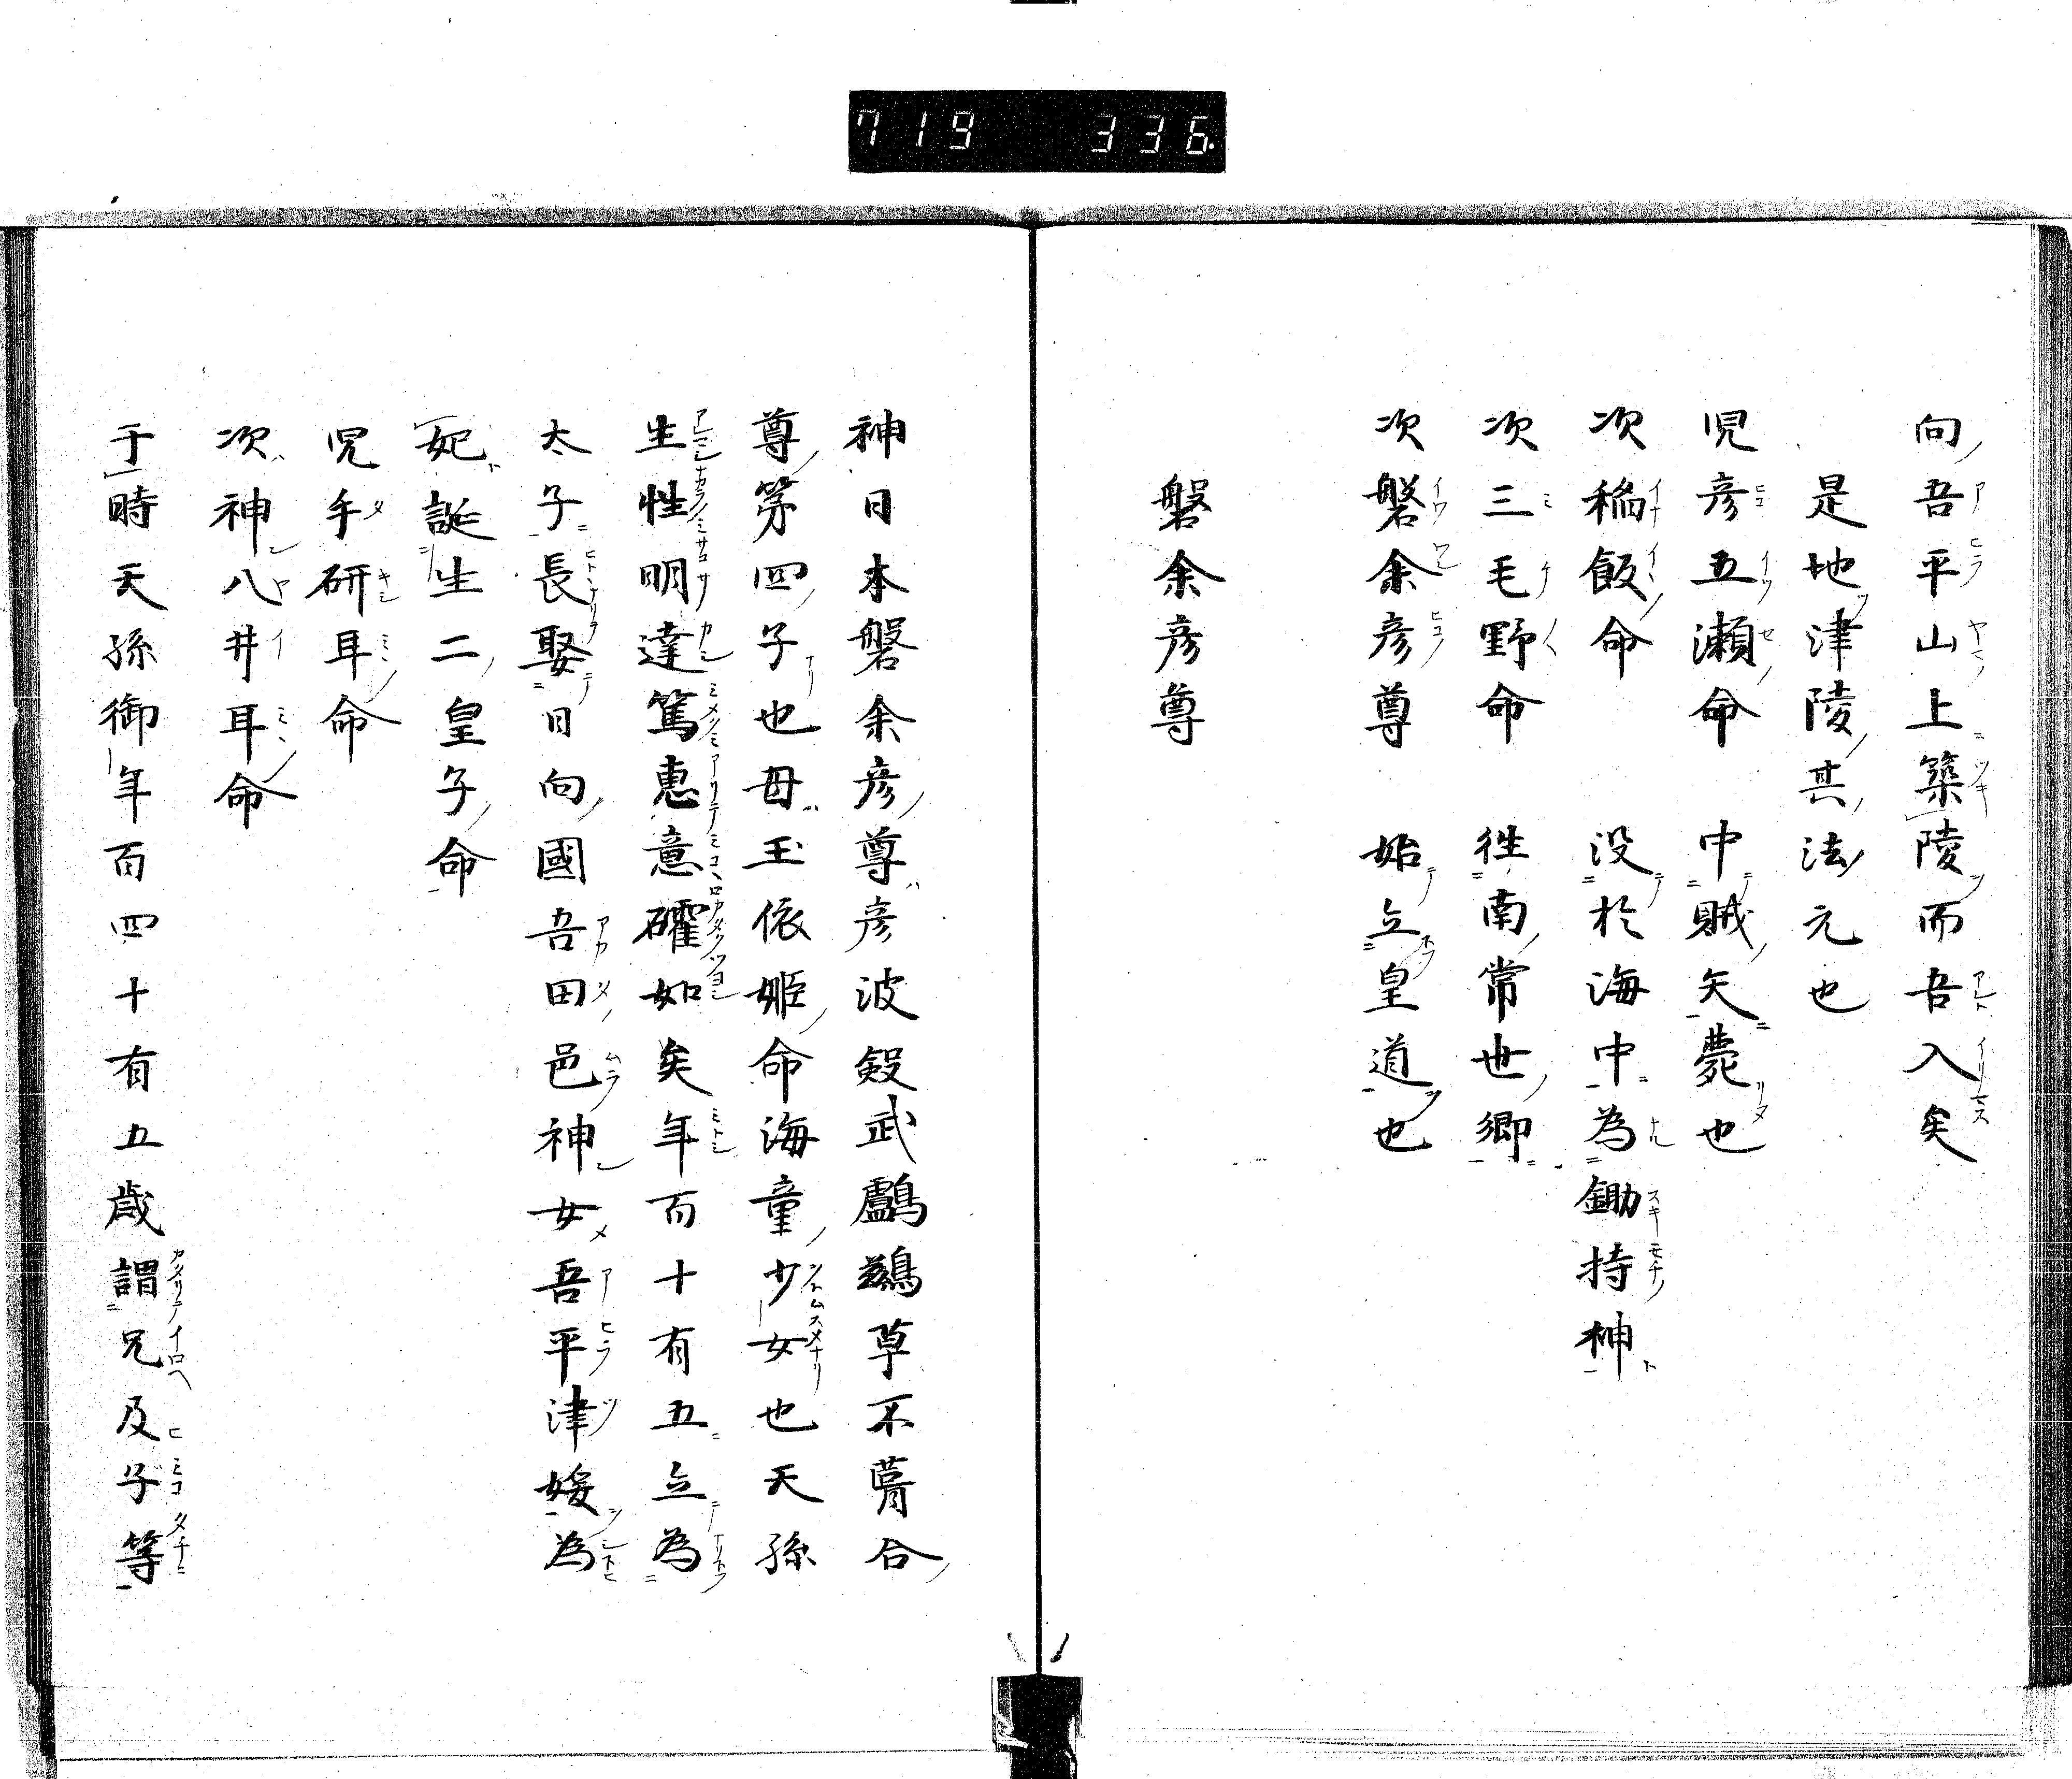 719 336
向吾平山上築陵而吾入矣
是地津陵其法元也
児彦五瀬命 中賊矢薨也
次稲飯命 没於海中為鋤持神
次三毛野命 徃南常世郷
次磐余彦尊 始立皇道也
磐余彦尊
神日本磐余彦尊彦波瀲武鸕鷀草不葺合
尊第四子也母玉依姫命海童少女也天孫
生性明達篤惠意礭如矣年百十有五立為
太子長娶日向國吾田邑神女吾平津媛為
妃誕生二皇子命
児手研耳命
次神八井耳命
于時天孫御年百四十有五歳謂兄及子等